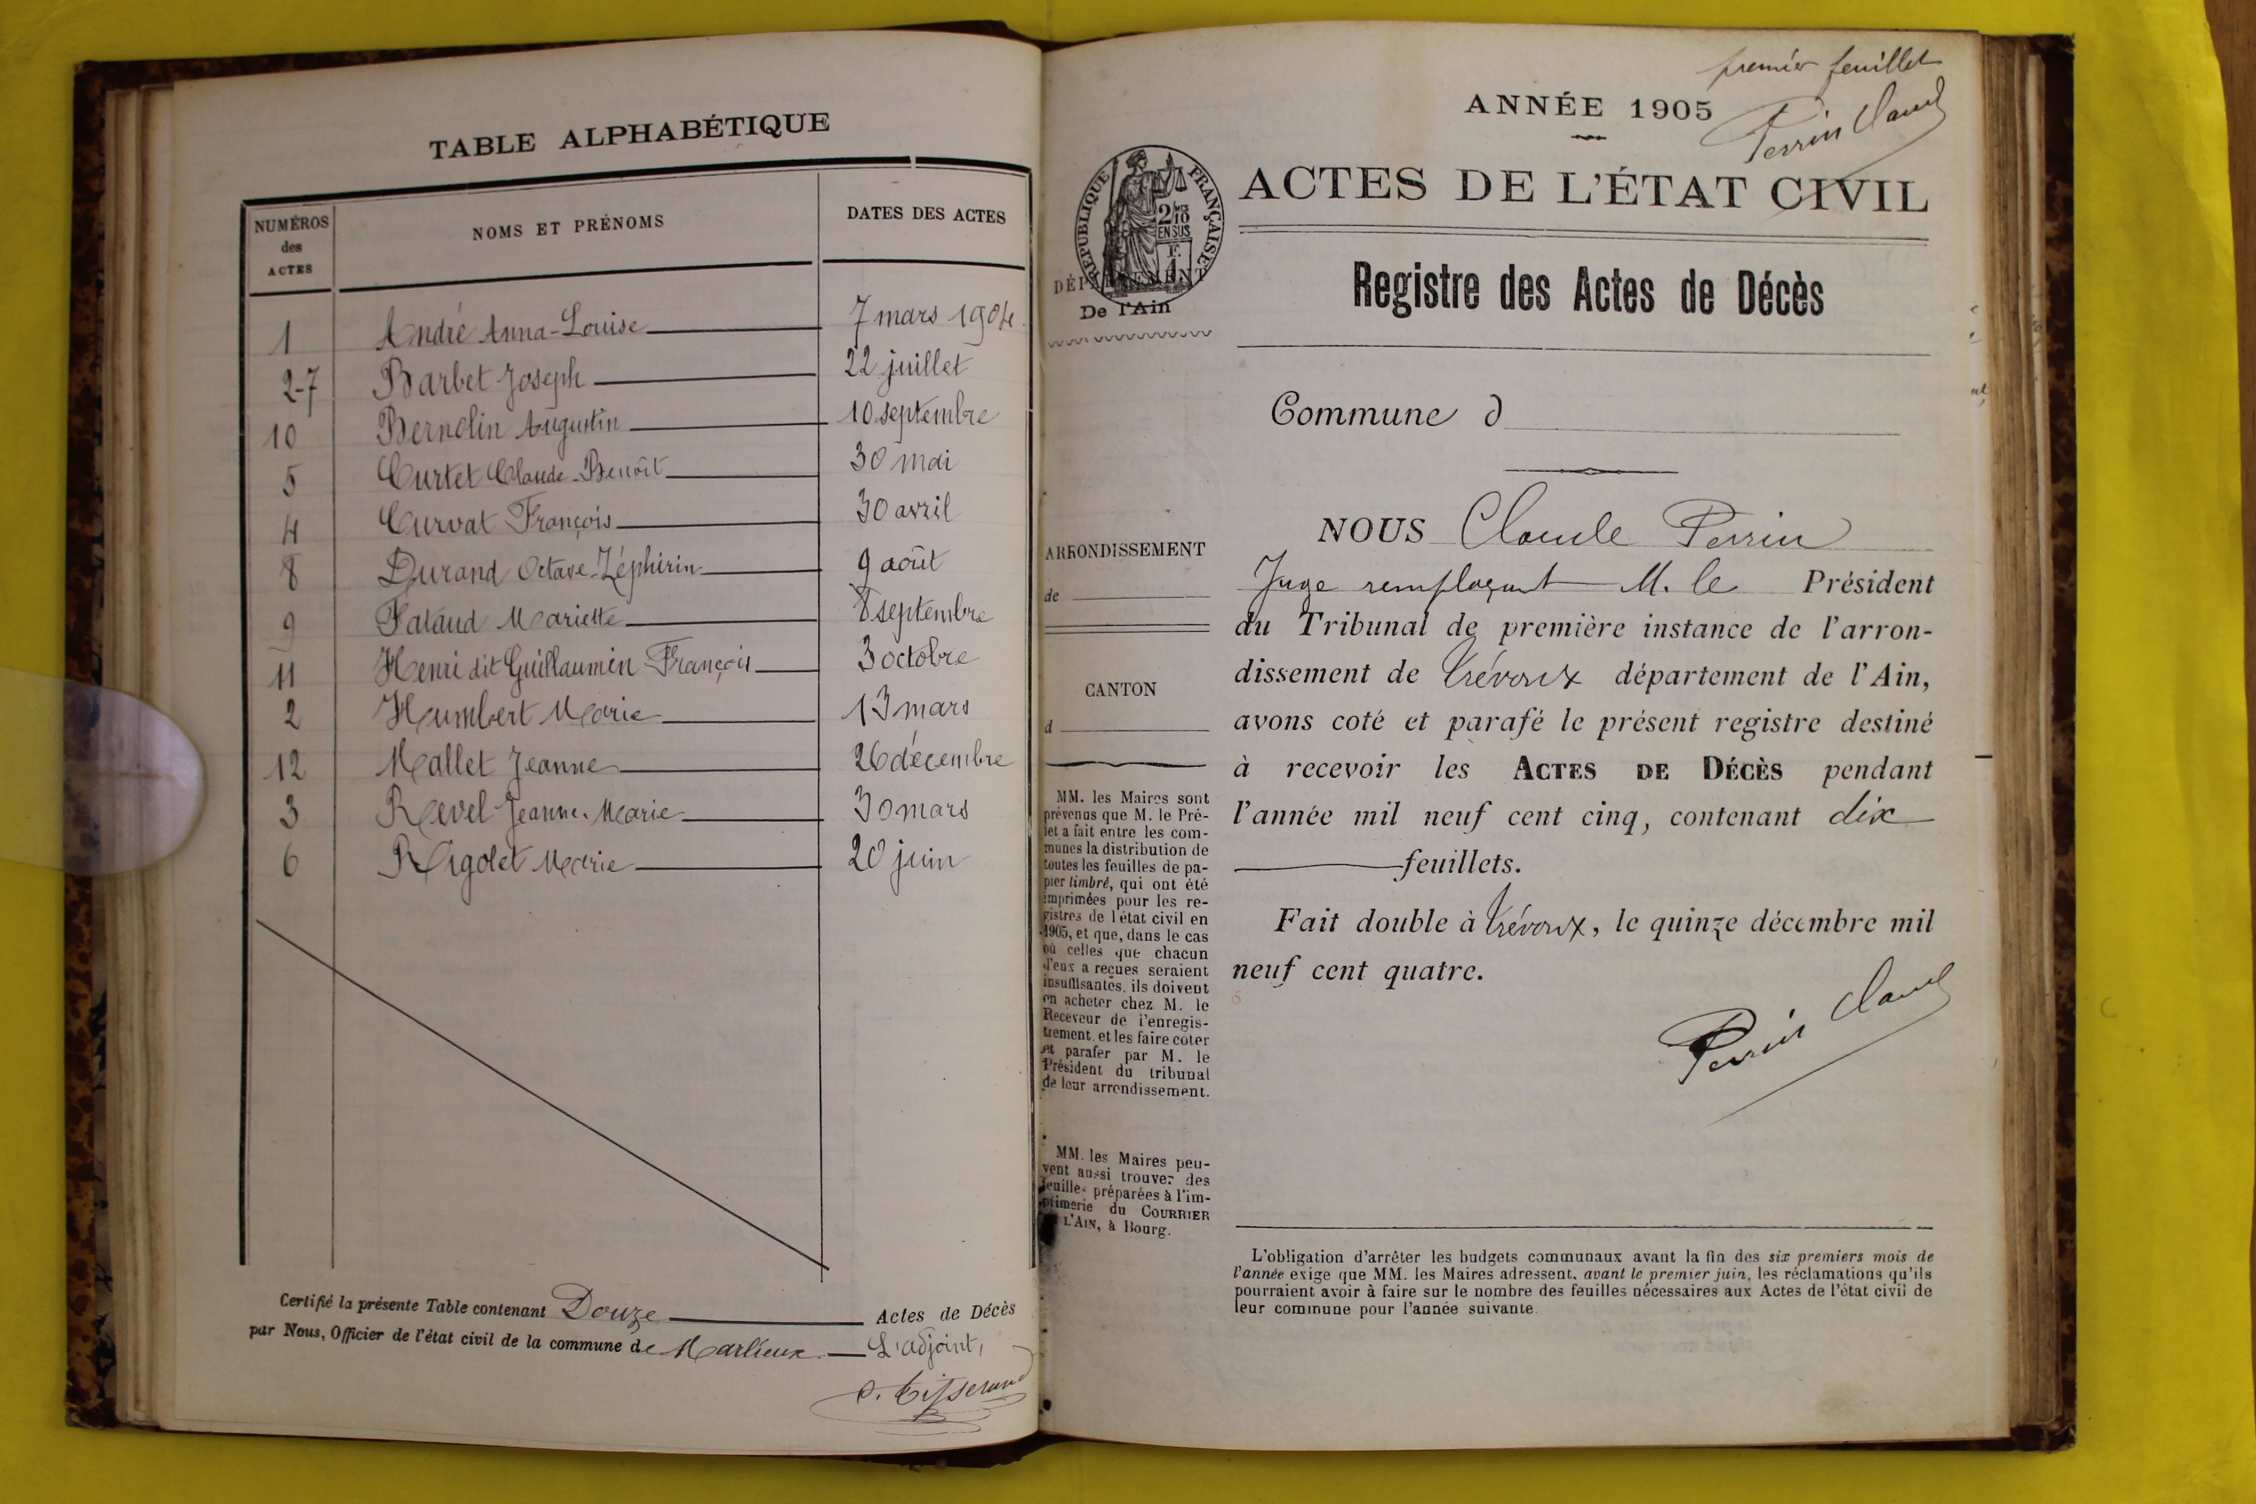 TABLE ALPHABÉTIQUE
NUMÉROS des ACTES
NOMS ET PRÉNOMS
DATES DES ACTES
1 André Anna-Louise 7 mars 1904
2-7 Barbet Joseph 22 juillet
10 Bernolin Augustin 10 septembre
5 Curtet Claude-Benoît 30 mai
4 Curvat François 30 avril
8 Durand Octave-Zéphirin 9 août
9 Fataud Mariette 8 septembre
11 Henri dit Guillaumin François 3 octobre
2 Humbert Marie 13 mars
12 Mallet Jeanne 26 décembre
3 Revel Jeanne-Marie 30 mars
6 Rigolet Marie 20 juin
Certifié la présente Table contenant Douze Actes de Décès
par Nous, Officier de l'état civil de la commune de Marlieux. L'adjoint,
C. Tisserand
premier feuillet
Perrin Claude
ANNÉE 1905
RÉPUBLIQUE FRANÇAISE
2/10 EN SUS
DÉPARTEMENT
De l'Ain
ACTES DE L'ÉTAT CIVIL
Registre des Actes de Décès
Commune d
ARRONDISSEMENT
de
CANTON
d
MM. les Maires sont
prévenus que M. le Pré-
fet a fait entre les com-
munes la distribution de
toutes les feuilles de pa-
pier timbré, qui ont été
imprimées pour les re-
gistres de l'état civil en
1905, et que, dans le cas
où celles que chacun
d'eux a reçues seraient
insuffisantes, ils doivent
en acheter chez M. le
Receveur de l'enregis-
trement, et les faire coter
et parafer par M. le
Président du tribunal
de leur arrondissement.
MM. les Maires peu-
vent aussi trouver des
feuilles préparées à l'im-
primerie du COURRIER
L'AIN, à Bourg.
NOUS Claude Perrin
Juge remplaçant M. le Président
du Tribunal de première instance de l'arron-
dissement de Trévoux département de l'Ain,
avons coté et parafé le présent registre destiné
à recevoir les ACTES DE DÉCÈS pendant
l'année mil neuf cent cinq, contenant dix
feuillets.
Fait double à Trévoux, le quinze décembre mil
neuf cent quatre.
Perrin Claude
L'obligation d'arrêter les budgets communaux avant la fin des six premiers mois de
l'année exige que MM. les Maires adressent, avant le premier juin, les réclamations qu'ils
pourraient avoir à faire sur le nombre des feuilles nécessaires aux Actes de l'état civil de
leur commune pour l'année suivante.